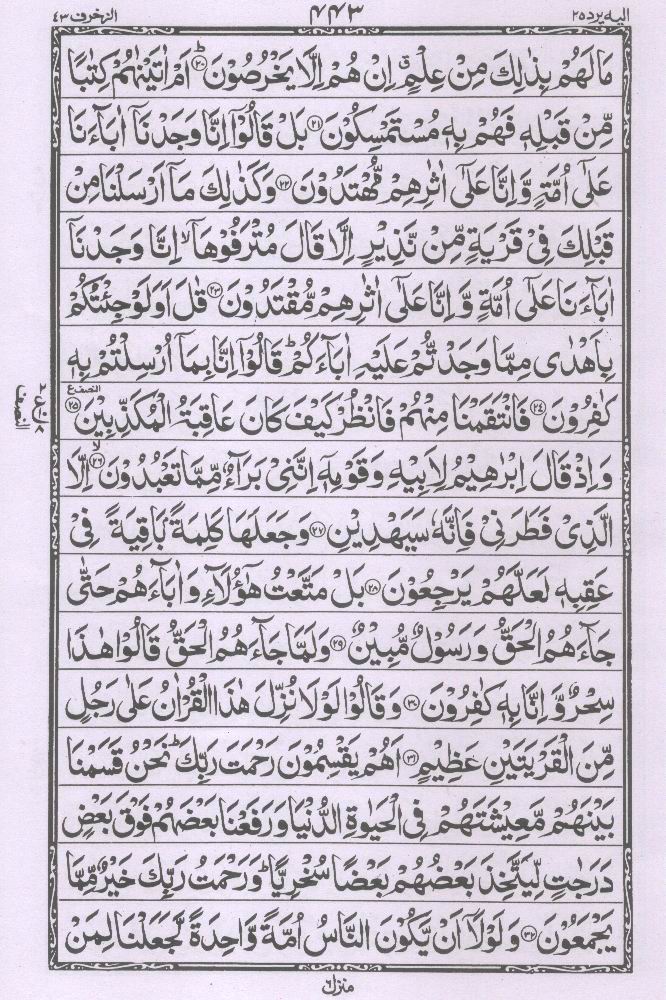 الیه یرد ٢٥
٤٤٣
الزخرف ٤٣
مَا لَهُمۡ بِذٰلِكَ مِنۡ عِلۡمٍ ۚ اِنۡ هُمۡ اِلَّا يَخۡرُصُوۡنَ ؕ‏﴿۲۰﴾‏ اَمۡ اٰتَيۡنٰهُمۡ كِتٰبًا
مِّنۡ قَبۡلِهٖ فَهُمۡ بِهٖ مُسۡتَمۡسِكُوۡنَ‏﴿۲۱﴾‏ بَلۡ قَالُوۡۤا اِنَّا وَجَدۡنَاۤ اٰبَآءَنَا
عَلٰٓى اُمَّةٍ وَّاِنَّا عَلٰٓى اٰثٰرِهِمۡ مُّهۡتَدُوۡنَ‏﴿۲۲﴾‏ وَكَذٰلِكَ مَاۤ اَرۡسَلۡنَا مِنۡ
قَبۡلِكَ فِىۡ قَرۡيَةٍ مِّنۡ نَّذِيۡرٍ اِلَّا قَالَ مُتۡرَفُوۡهَاۤ ۙ اِنَّا وَجَدۡنَاۤ
اٰبَآءَنَا عَلٰٓى اُمَّةٍ وَّاِنَّا عَلٰٓى اٰثٰرِهِمۡ مُّقۡتَدُوۡنَ‏﴿۲۳﴾‏ قٰلَ اَوَلَوۡ جِئۡتُكُمۡ
بِاَهۡدٰى مِمَّا وَجَدْتُّمۡ عَلَيۡهِ اٰبَآءَكُمۡ ؕ قَالُوۡۤا اِنَّا بِمَاۤ اُرۡسِلۡتُمۡ بِهٖ
كٰفِرُوۡنَ‏﴿۲۴﴾‏ فَانْتَقَمۡنَا مِنۡهُمۡ فَانْظُرۡ كَيۡفَ كَانَ عَاقِبَةُ الۡمُكَذِّبِيۡنَ‏﴿۲۵﴾
وَاِذۡ قَالَ اِبۡرٰهِيۡمُ لِاَبِيۡهِ وَقَوۡمِهٖۤ اِنَّنِىۡ بَرَآءٌ مِّمَّا تَعۡبُدُوۡنَۙ‏﴿۲۶﴾‏ اِلَّا
الَّذِىۡ فَطَرَنِىۡ فَاِنَّهٗ سَيَهۡدِيۡنِ‏﴿۲۷﴾‏ وَ جَعَلَهَا كَلِمَةًۢ بَاقِيَةً فِىۡ
عَقِبِهٖ لَعَلَّهُمۡ يَرۡجِعُوۡنَ‏﴿۲۸﴾‏ بَلۡ مَتَّعۡتُ هٰٓؤُلَاۤءِ وَاٰبَآءَهُمۡ حَتّٰى
جَآءَهُمُ الۡحَقُّ وَرَسُوۡلٌ مُّبِيۡنٌ‏﴿۲۹﴾‏ وَلَمَّا جَآءَهُمُ الۡحَقُّ قَالُوۡا هٰذَا
سِحۡرٌ وَّاِنَّا بِهٖ كٰفِرُوۡنَ‏﴿۳۰﴾‏ وَقَالُوۡا لَوۡلَا نُزِّلَ هٰذَا الۡقُرۡاٰنُ عَلٰى رَجُلٍ
مِّنَ الۡقَرۡيَتَيۡنِ عَظِيۡمٍ‏﴿۳۱﴾‏ اَهُمۡ يَقۡسِمُوۡنَ رَحۡمَتَ رَبِّكَ ؕ نَحۡنُ قَسَمۡنَا
بَيۡنَهُمۡ مَّعِيۡشَتَهُمۡ فِى الۡحَيٰوةِ الدُّنۡيَا وَرَفَعۡنَا بَعۡضَهُمۡ فَوۡقَ بَعۡضٍ
دَرَجٰتٍ لِّيَتَّخِذَ بَعۡضُهُمۡ بَعۡضًا سُخۡرِيًّا ؕ وَرَحۡمَتُ رَبِّكَ خَيۡرٌ مِّمَّا
يَجۡمَعُوۡنَ‏﴿۳۲﴾‏ وَلَوۡلَاۤ اَنۡ يَّكُوۡنَ النَّاسُ اُمَّةً وَّاحِدَةً لَّجَعَلۡنَا لِمَنۡ
منزل ٦